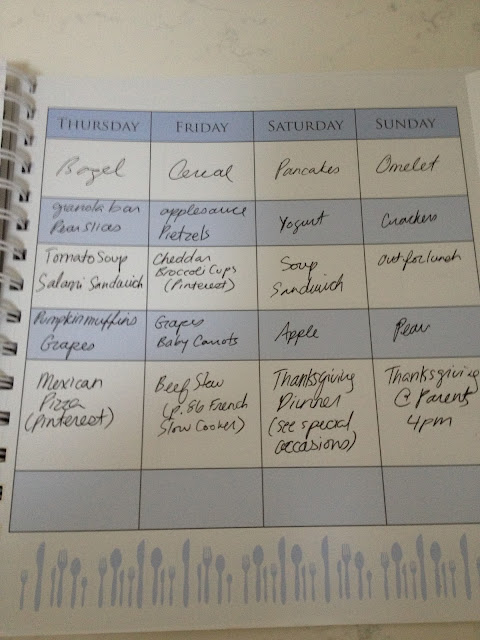 THURSDAY FRIDAY SATURDAY SUNDAY
Bagel Cereal Pancakes Omelet
granola bar
Pear slices
applesauce
Pretzels
Yogurt
Crackers
Tomato Soup
Salami Sandwich
Cheddar
Broccoli Cups
(Pinterest)
Soup
Sandwich
out for lunch
Pumpkin muffins
Grapes
Grapes
Baby Carrots
Apple
Pear
Mexican
Pizza
(Pinterest)
Beef Stew
(p. 86 French
Slow Cooker)
Thanksgiving
Dinner
(see special
occasions)
Thanksgiving
@ Parents
4pm